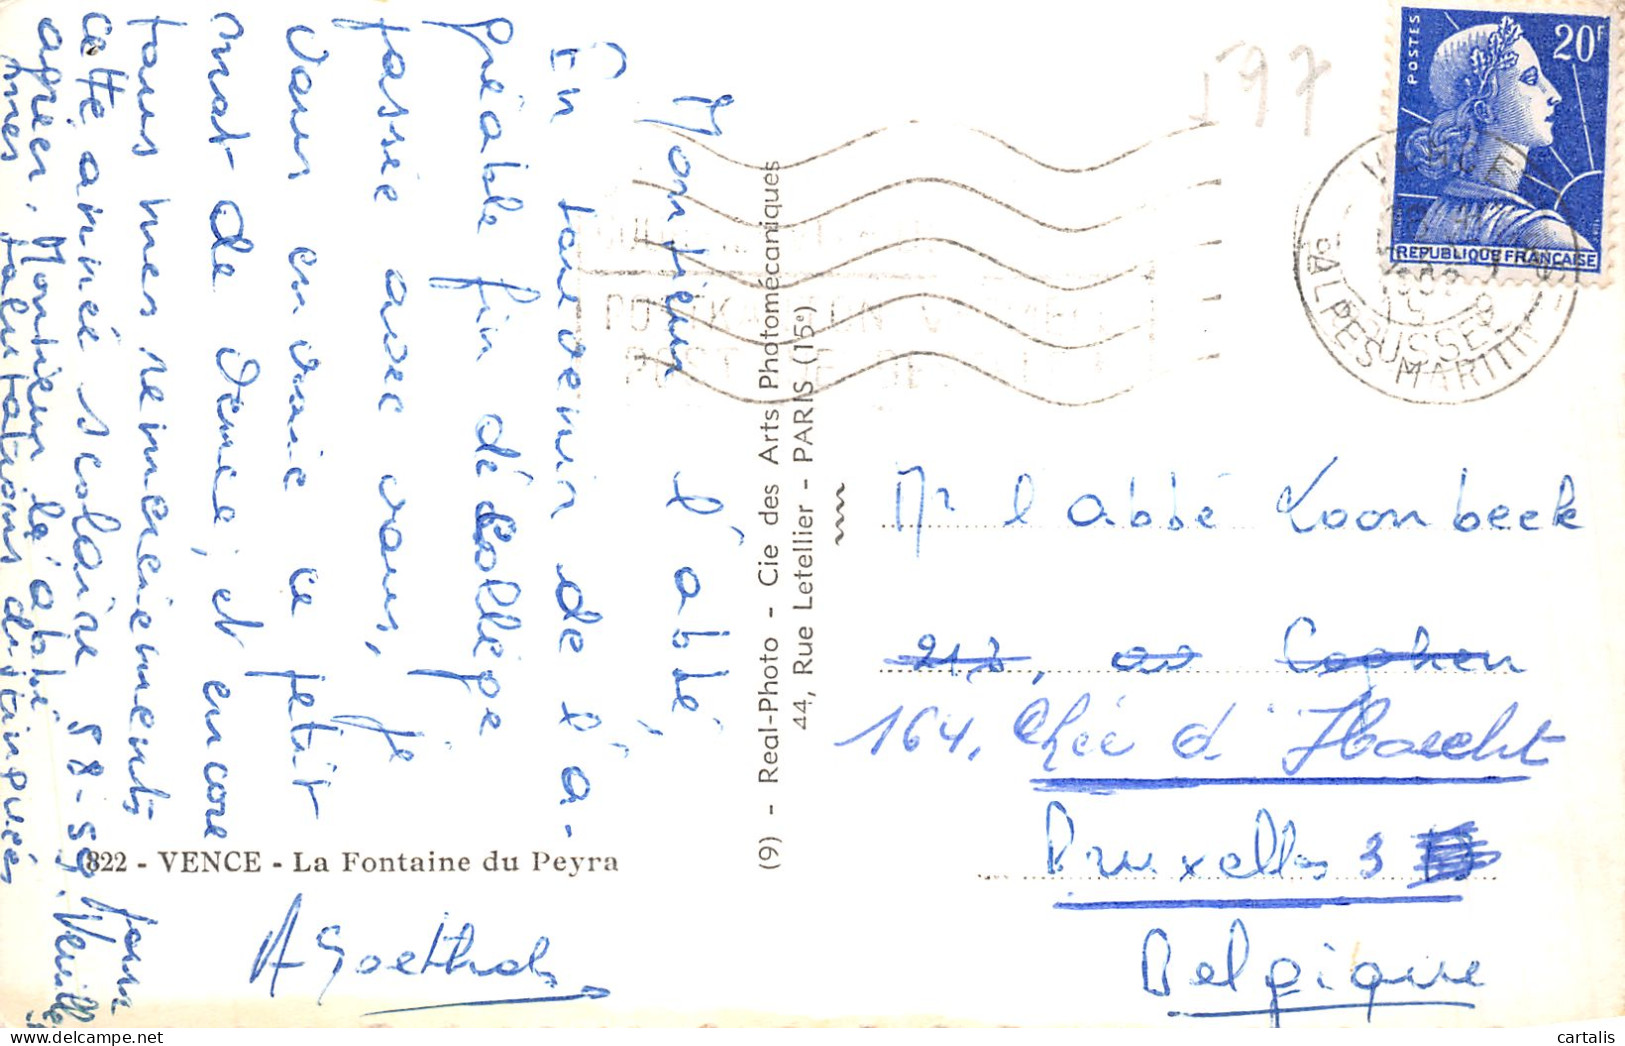 Monsieur l'abbé,
En souvenir de l'a-
gréable fin de Collège
passée avec vous, je
vous envoie ce petit
mot de Vence, et encore
tous mes remerciements pour
cette année scolaire 58-59. Veuillez
agréer, Monsieur l'abbé
mes salutations distinguées
AGoethals
822 - VENCE - La Fontaine du Peyra
(9) - Real-Photo - Cie des Arts Photomécaniques
44, Rue Letellier - PARIS (15e)
197
POSTES
20F
REPUBLIQUE FRANÇAISE
VENCE
ALPES-MARITIMES
Mr l'abbé Loonbeek
212, av Cophen
164, Chée d'Haecht
Bruxelles 3
Belgique
cartalis